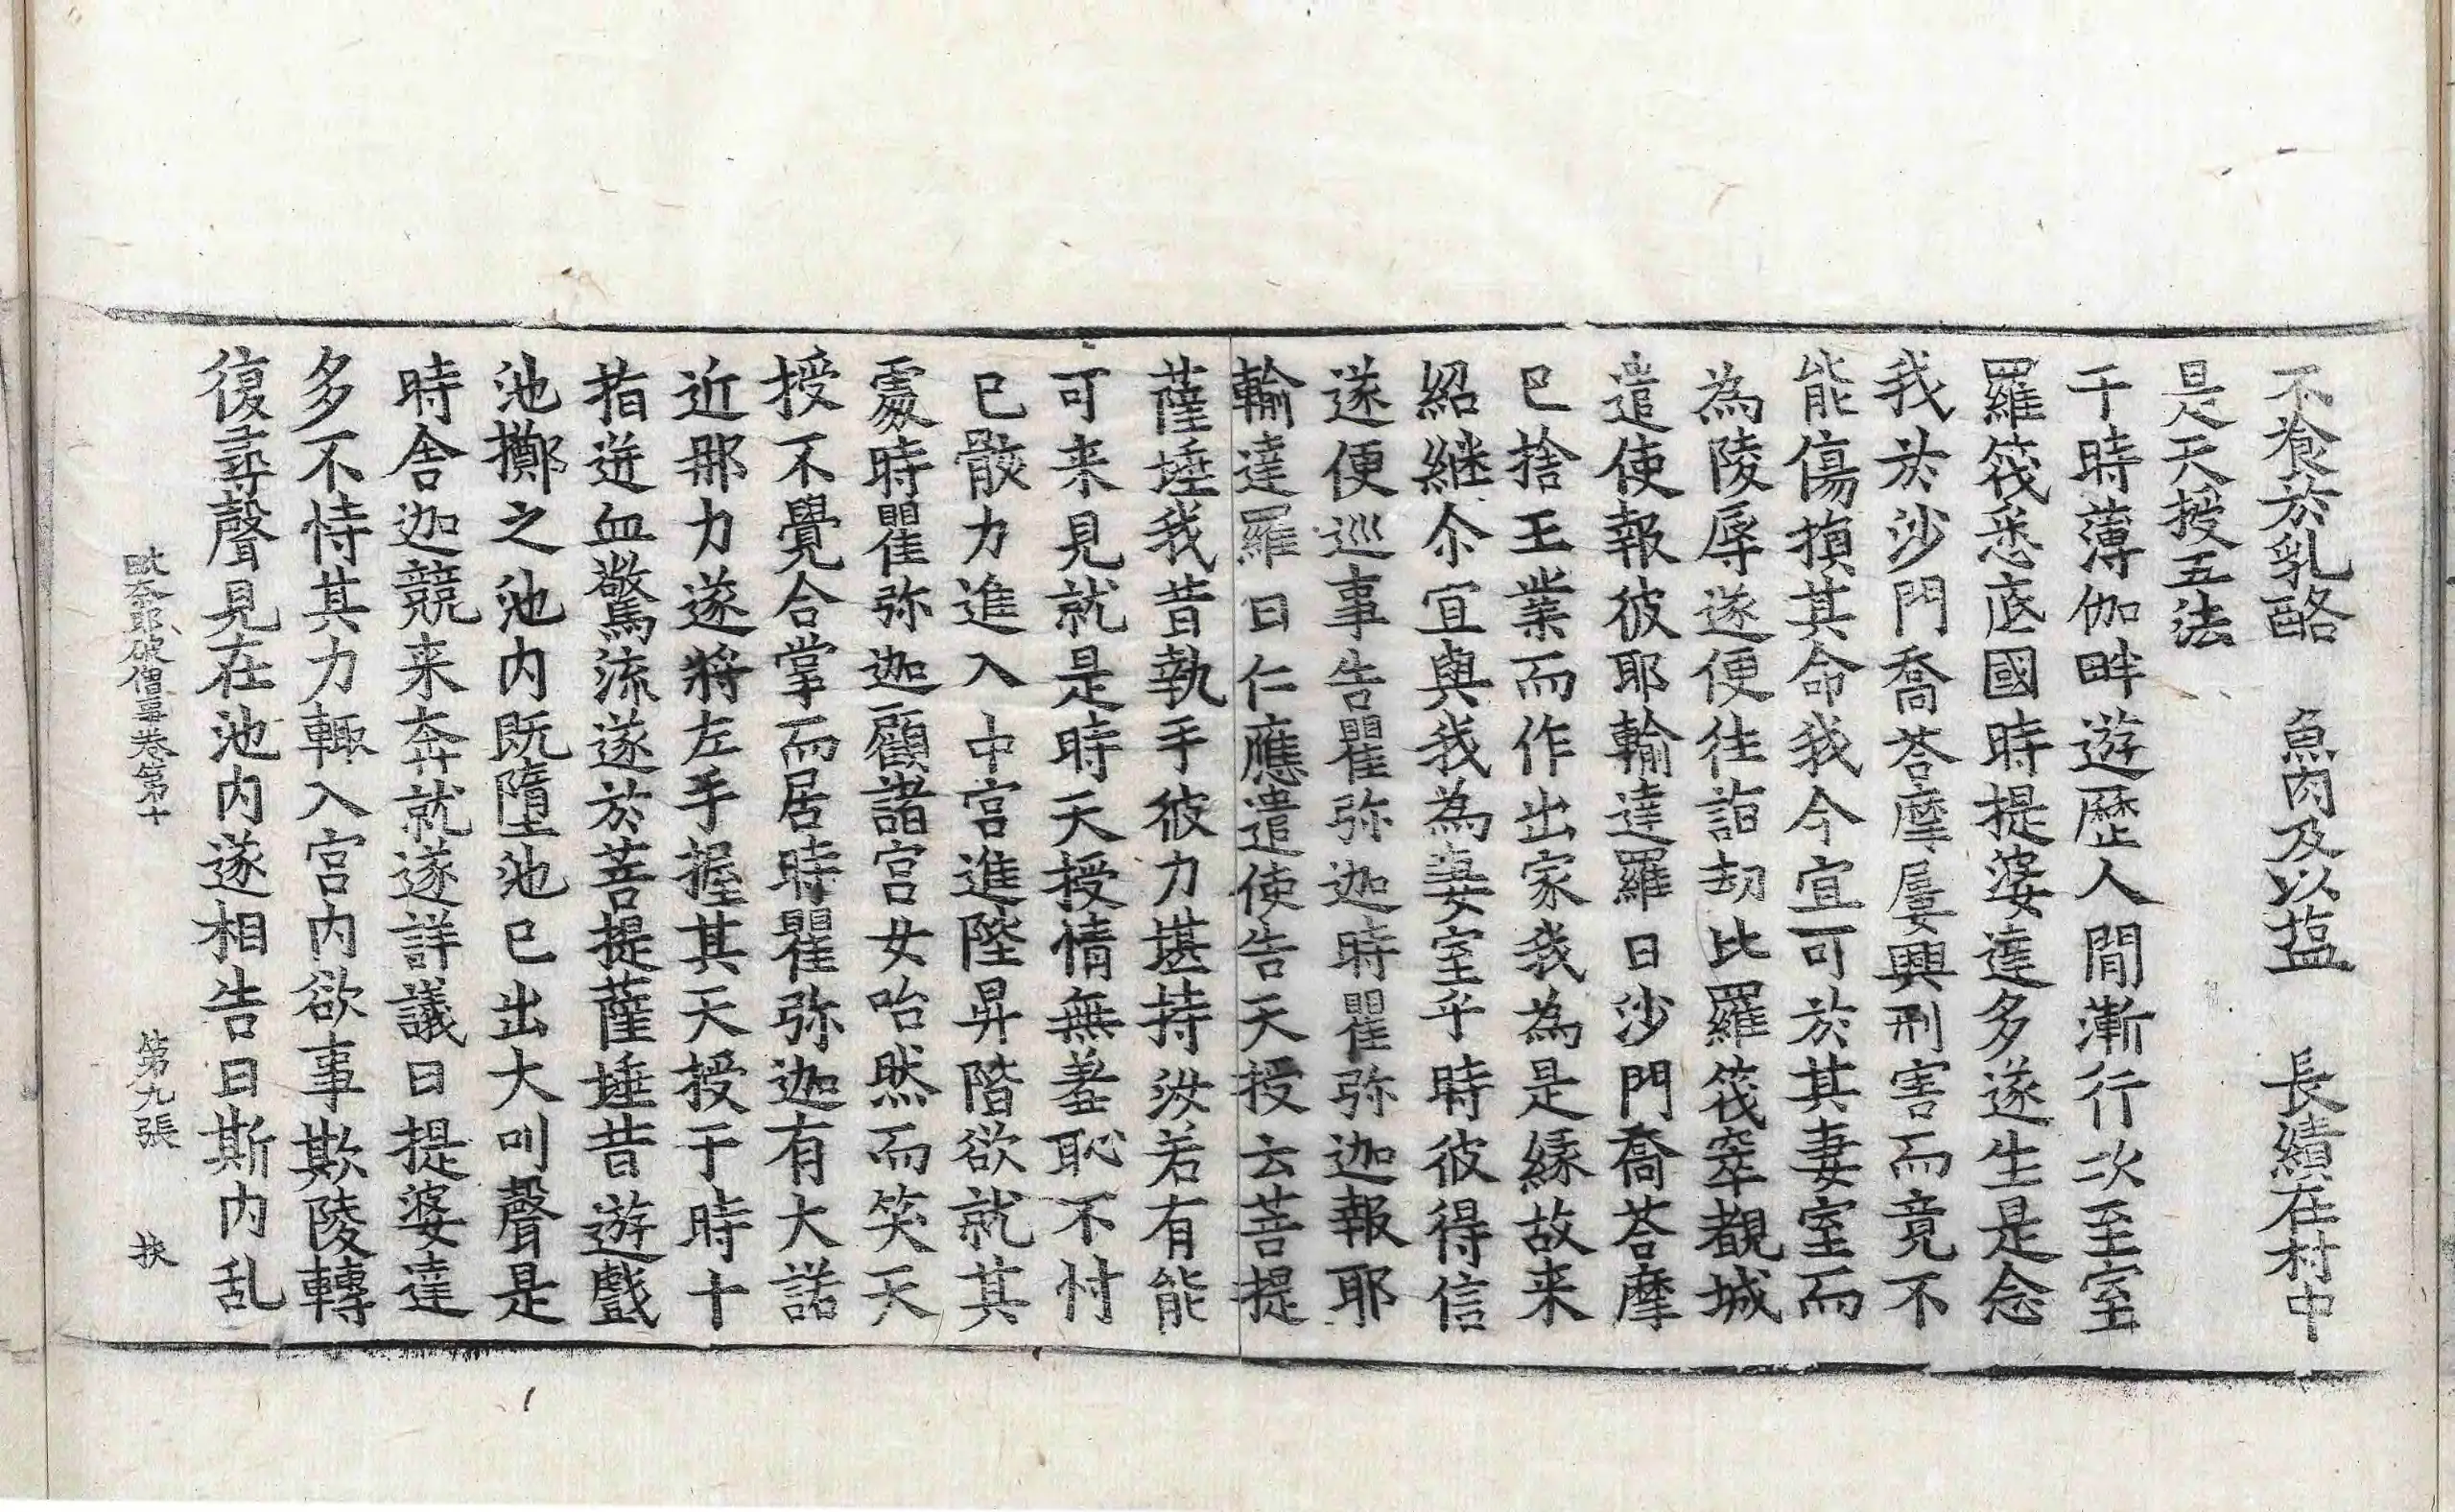 不飡於乳酪　魚肉及以塩　長績在村中
是天授五法
于時薄伽畔遊歷人間漸行次至室
羅筏悉底國時提婆達多遂生是念
我於沙門喬荅摩屢興刑害而竟不
能傷損其命我今宜可於其妻室而
為陵辱遂便往詣劫比羅筏窣覩城
遣使報彼耶輸達羅曰沙門喬荅摩
已捨王業而作出家我為是緣故来
紹継尒宜與我為妻室乎時彼得信
遂便巡事告瞿弥迦時瞿弥迦報耶
輸達羅曰仁應遣使告天授云菩提
薩埵我昔執手彼力堪持汝若有能
可来見就是時天授情無羞恥不忖
已骸力進入中宮進陞昇階欲就其
處時瞿弥迦顧諸宮女咍然而笑天
授不覺合掌而居時瞿弥迦有大諾
近那力遂將左手握其天授于時十
指迸血驚流遂於菩提薩埵昔遊戲
池擲之池内既墮池已出大叫聲是
時舍迦競来奔就遂詳議曰提婆達
多不恃其力輙入宮内欲事欺陵轉
復尋聲見在池内遂相告曰斯内乱
毗奈耶破僧事卷第十　第九張　扶